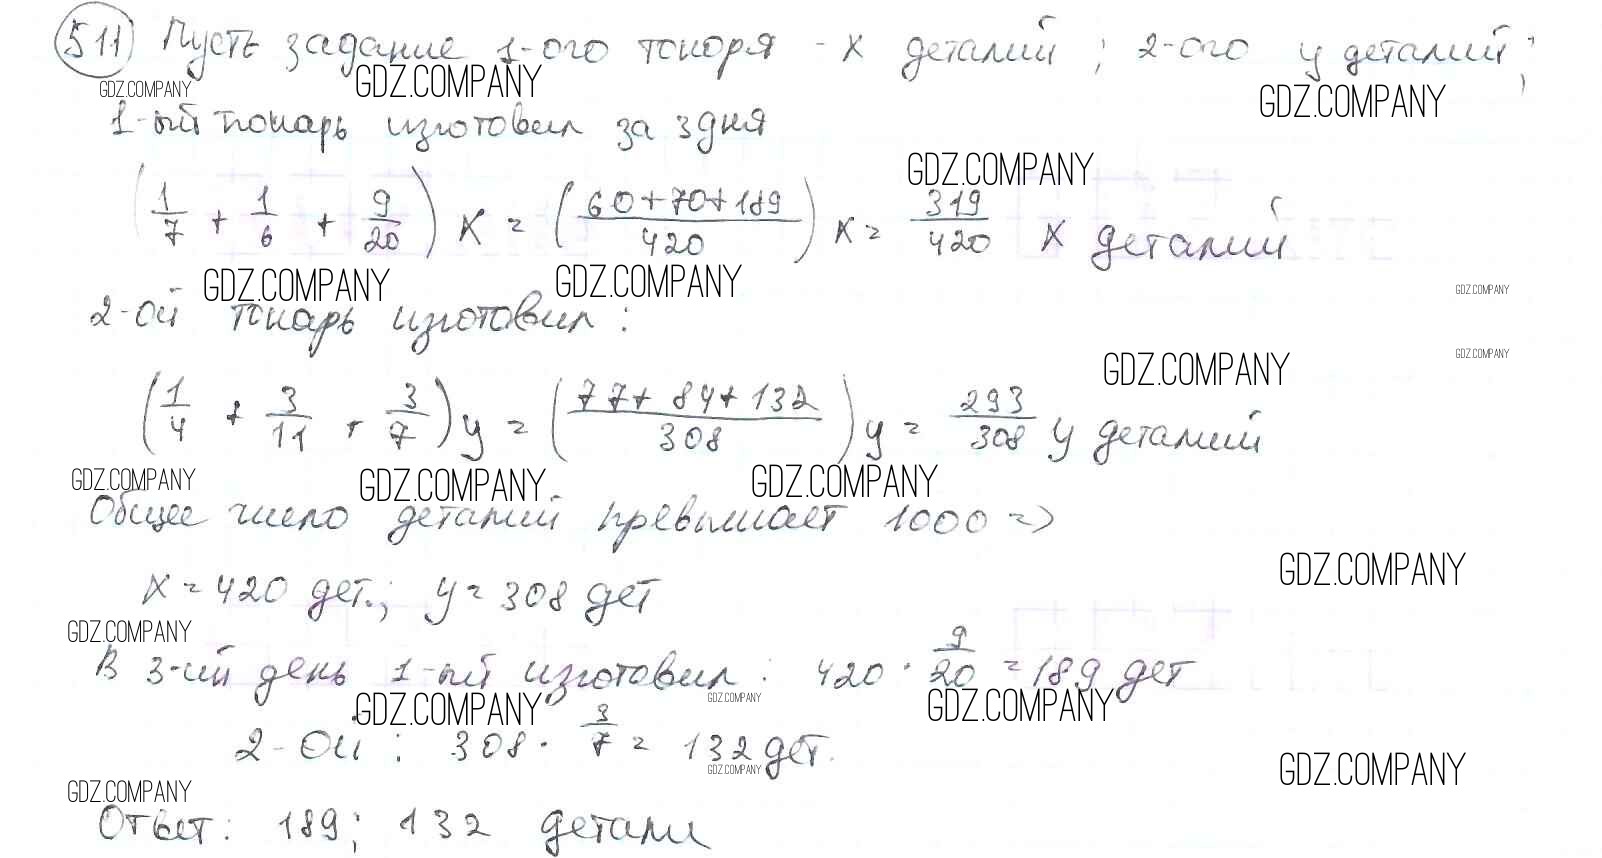 511 Пусть задание 1-ого токоря - x деталий; 2-ого y деталий;
GDZ.COMPANY GDZ.COMPANY GDZ.COMPANY
1-ый токарь изготовил за 3 дня
GDZ.COMPANY
(1/7 + 1/6 + 9/20) x = ((60+70+189)/420) x = 319/420 x деталий
GDZ.COMPANY GDZ.COMPANY GDZ.COMPANY
2-ой токарь изготовил:
GDZ.COMPANY GDZ.COMPANY
(1/4 + 3/11 + 3/7) y = ((77+84+132)/308) y = 293/308 y деталий
GDZ.COMPANY GDZ.COMPANY GDZ.COMPANY
Общее число деталий превышает 1000 =>
GDZ.COMPANY
x = 420 дет.; y = 308 дет
GDZ.COMPANY
В 3-ий день 1-ый изготовил: 420 · 9/20 = 189 дет
GDZ.COMPANY GDZ.COMPANY GDZ.COMPANY
2-ой: 308 · 3/7 = 132 дет.
GDZ.COMPANY GDZ.COMPANY
GDZ.COMPANY
Ответ: 189; 132 детали